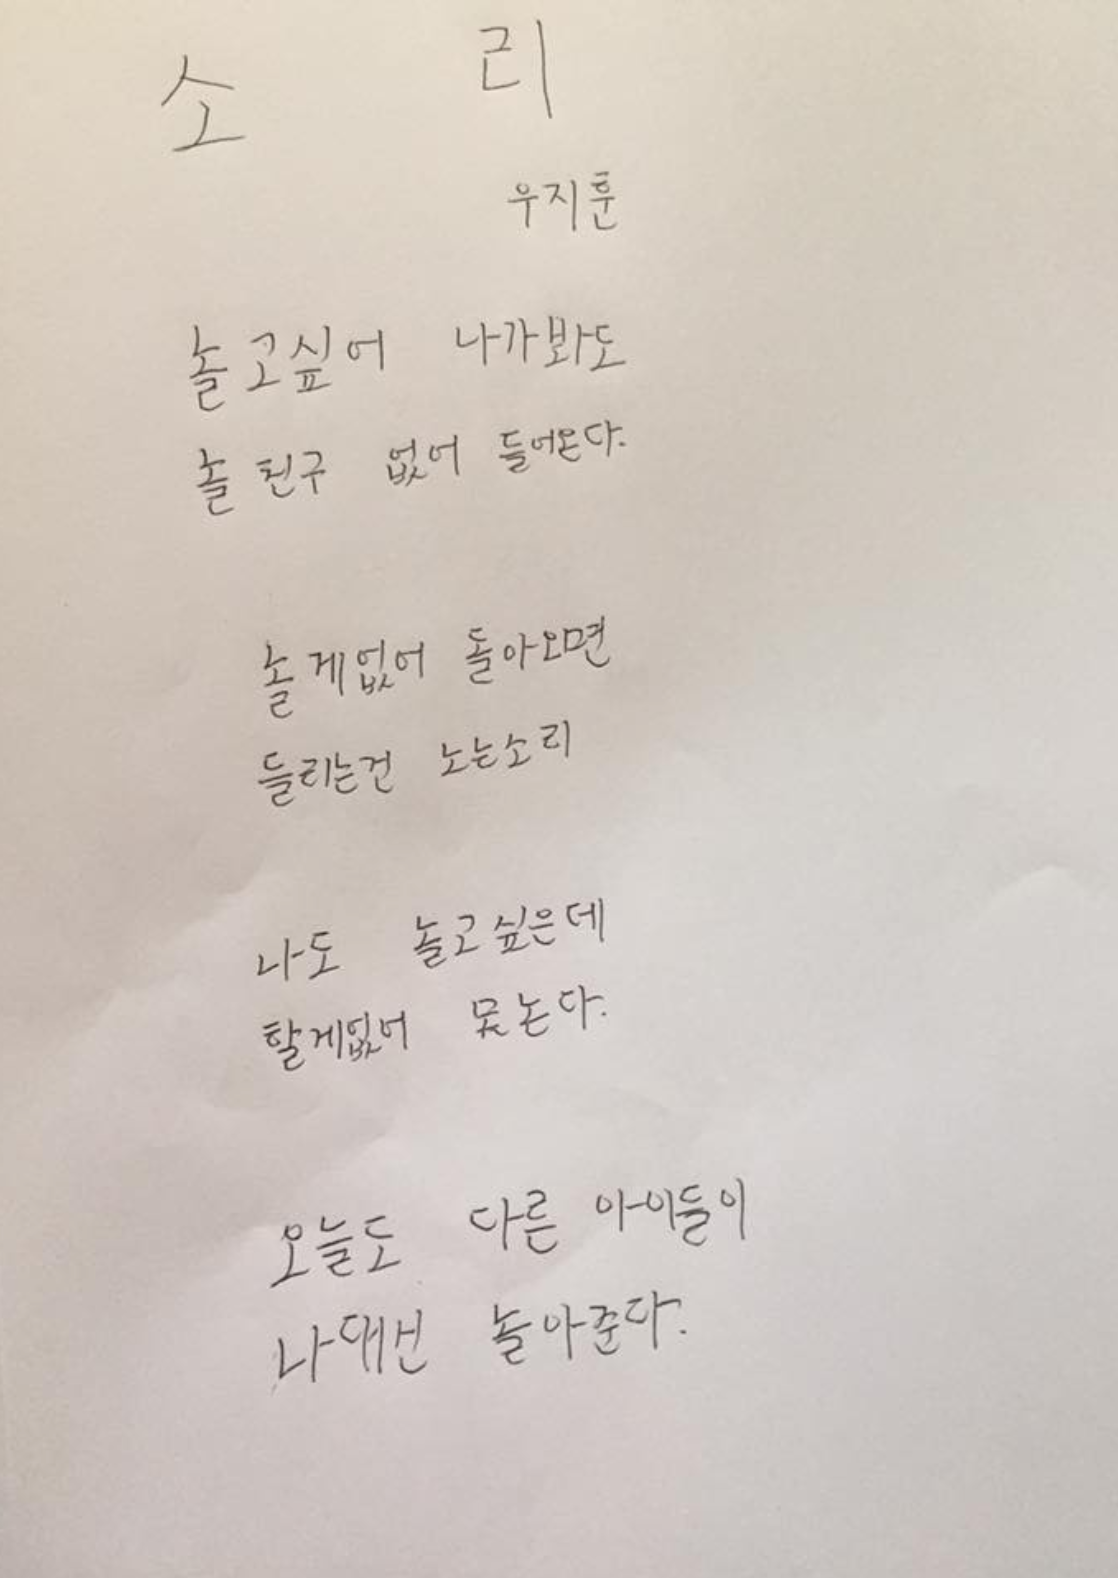 소 리
우지훈
놀고싶어 나가봐도
놀 친구 없어 들어온다.
놀게없어 돌아오면
들리는건 노는소리
나도 놀고싶은데
할게없어 못논다.
오늘도 다른 아이들이
나대신 놀아준다.